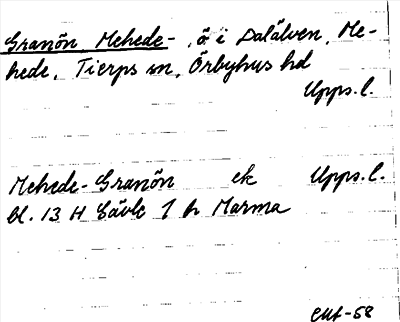 Granön, Mehede-, ö i Dalälven, Me-
hede, Tierps sn, Örbyhus hd
Upps.l.
Mehede-Granön ek Upps.l.
bl. 13 H Gävle 1 h Marma
CMt-58